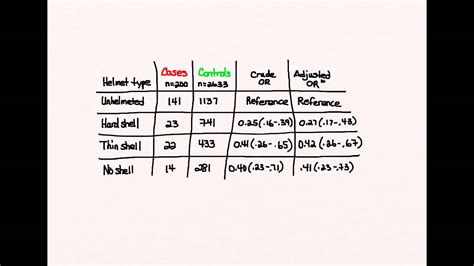 Cases Controls Crude Adjusted
Helmet type n=200 n=2633 OR OR*
Unhelmeted 141 1137 Reference Reference
Hard shell 23 741 0.25(.16-.39) 0.27(.17-.43)
Thin shell 22 433 0.41(.26-.65) 0.42(.26-.67)
No shell 14 281 0.40(.23-.71) .41(.23-.73)